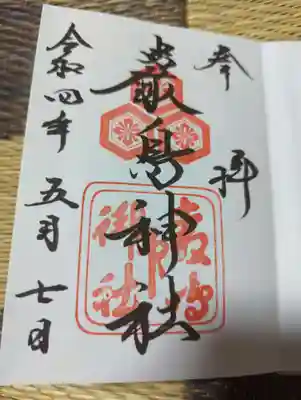 奉拝
嚴島神社
令和四年五月七日
嚴島
御社印